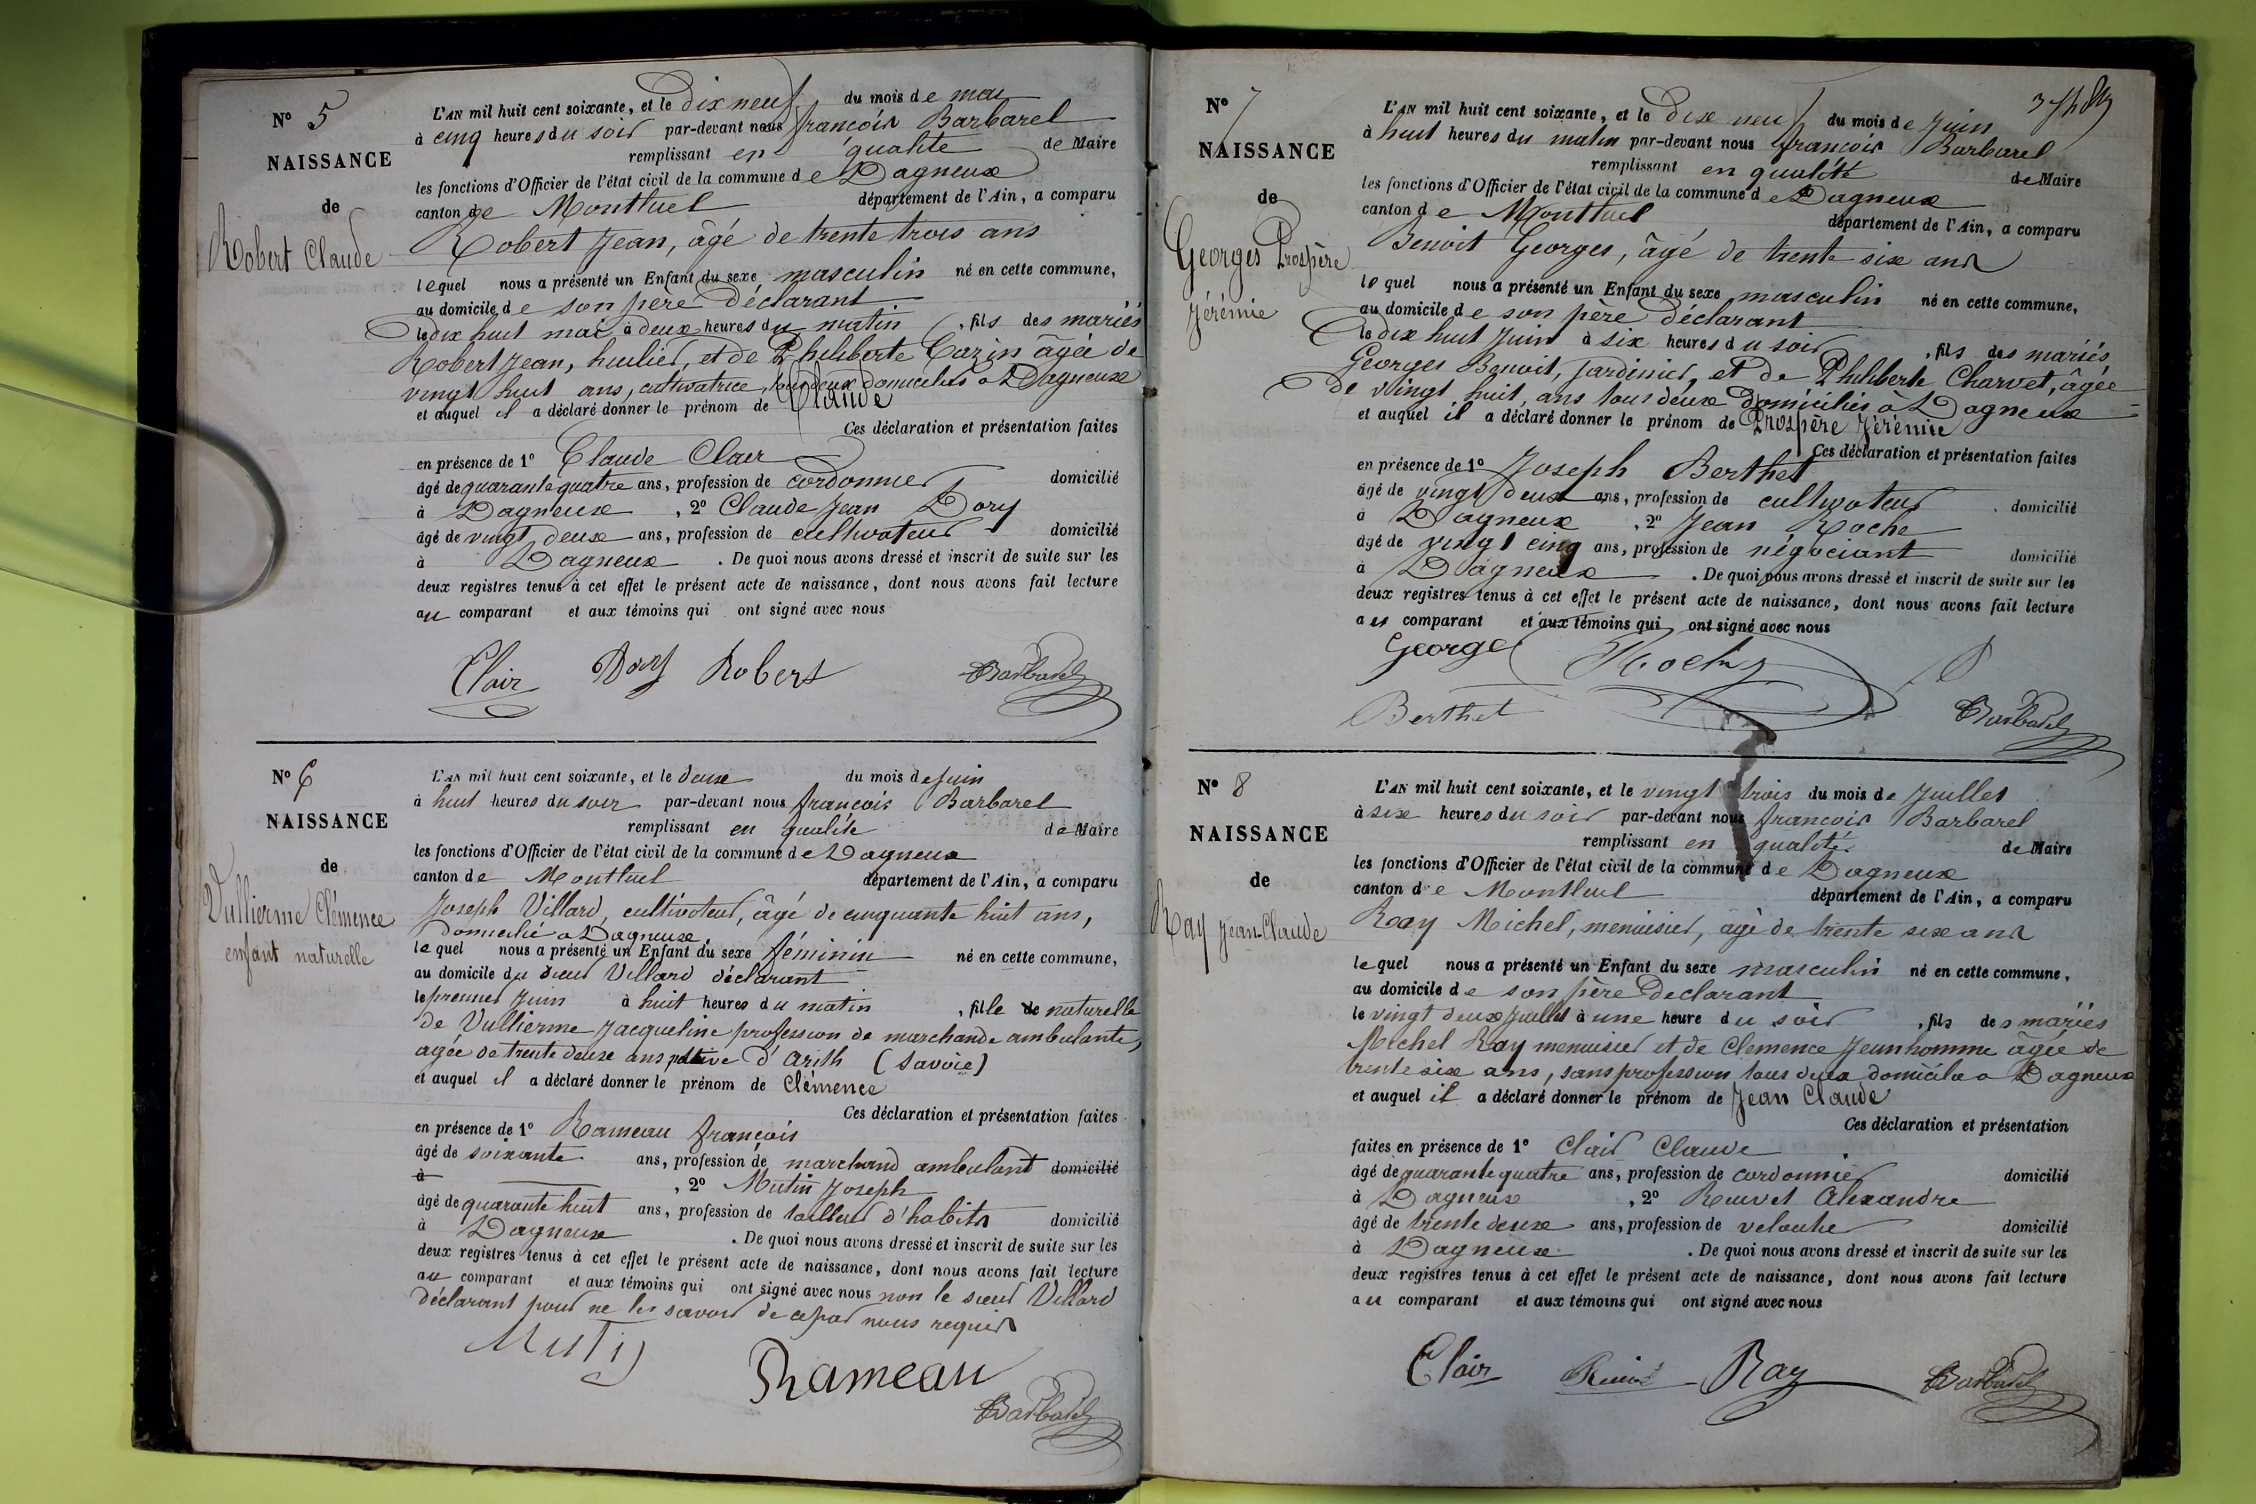 N° 5
NAISSANCE
de
Robert Claude
L'AN mil huit cent soixante, et le Dix neuf du mois de mai
à cinq heures du soir par-devant nous françois Barbarel
remplissant en qualité de Maire
les fonctions d'Officier de l'état civil de la commune de Dagneux
canton de Montluel département de l'Ain, a comparu
Robert Jean, âgé de trente trois ans
lequel nous a présenté un Enfant du sexe masculin né en cette commune,
au domicile de son père Déclarant
le dix huit mai à deux heures du matin, fils des mariés
Robert Jean, huilier, et de Philiberte Cazin âgée de
vingt huit ans, cultivatrice, tous deux domiciliés à Dagneux
et auquel il a déclaré donner le prénom de Claude
Ces déclaration et présentation faites
en présence de 1° Claude Clair
âgé de quarante quatre ans, profession de cordonnier domicilié
à Dagneux, 2° Claude Jean Dory
âgé de vingt deux ans, profession de cultivateur domicilié
à Dagneux. De quoi nous avons dressé et inscrit de suite sur les
deux registres tenus à cet effet le présent acte de naissance, dont nous avons fait lecture
au comparant et aux témoins qui ont signé avec nous
Clair Dory Robert Barbarel
N° 6
NAISSANCE
de
Vullierme Clémence
enfant naturelle
L'AN mil huit cent soixante, et le deux du mois de Juin
à huit heures du soir par-devant nous françois Barbarel
remplissant en qualité de Maire
les fonctions d'Officier de l'état civil de la commune de Dagneux
canton de Montluel département de l'Ain, a comparu
Joseph Villard, cultivateur, âgé de cinquante huit ans,
Domicilié à Dagneux,
lequel nous a présenté un Enfant du sexe féminin né en cette commune,
au domicile du sieur Villard déclarant
le premier Juin à huit heures du matin, fille de naturelle
de Vullierme Jacqueline profession de marchande ambulante,
agée de trente deux ans native d'Arith (Savoie)
et auquel il a déclaré donner le prénom de Clémence
Ces déclaration et présentation faites
en présence de 1° Rameau françois
âgé de soixante ans, profession de marchand ambulant domicilié
à , 2° Mutin Joseph
âgé de quarante huit ans, profession de tailleur d'habits domicilié
à Dagneux. De quoi nous avons dressé et inscrit de suite sur les
deux registres tenus à cet effet le présent acte de naissance, dont nous avons fait lecture
au comparant et aux témoins qui ont signé avec nous non le sieur Villard
déclarant pour ne les savoir de ce par nous requis
Mutin
Rameau
Barbarel
N° 7
NAISSANCE
de
Georges Prospère
Jérémie
L'AN mil huit cent soixante, et le Dix neuf du mois de Juin
à huit heures du matin par-devant nous françois Barbarel
remplissant en qualité de Maire
les fonctions d'Officier de l'état civil de la commune de Dagneux
canton de Montluel département de l'Ain, a comparu
Benoit Georges, âgé de trente six ans
lequel nous a présenté un Enfant du sexe masculin né en cette commune,
au domicile de son père Déclarant
le dix huit Juin à six heures du soir, fils des mariés
Georges Benoit, Jardinier, et de Philiberte Charvet, âgée
de vingt huit, ans tous deux Domiciliés à Dagneux
et auquel il a déclaré donner le prénom de Prospère Jérémie
Ces déclaration et présentation faites
en présence de 1° Joseph Berthet
âgé de vingt deux ans, profession de cultivateur domicilié
à Dagneux, 2° Jean Roche
âgé de vingt cinq ans, profession de négociant domicilié
à Dagneux. De quoi nous avons dressé et inscrit de suite sur les
deux registres tenus à cet effet le présent acte de naissance, dont nous avons fait lecture
au comparant et aux témoins qui ont signé avec nous
George Roche
Berthet Barbarel
N° 8
NAISSANCE
de
Ray Jean-Claude
L'AN mil huit cent soixante, et le vingt trois du mois de Juillet
à six heures du soir par-devant nous françois Barbarel
remplissant en qualité de Maire
les fonctions d'Officier de l'état civil de la commune de Dagneux
canton de Montluel département de l'Ain, a comparu
Ray Michel, menuisier, âgé de trente six ans
lequel nous a présenté un Enfant du sexe masculin né en cette commune,
au domicile de son père Declarant
le vingt deux Juillet à une heure du soir, fils des mariés
Michel Ray menuisier et de Clemence Jeunhomme âgée de
trente six ans, sans profession tous deux domiciliés à Dagneux
et auquel il a déclaré donner le prénom de Jean Claude
Ces déclaration et présentation
faites en présence de 1° Clair Claude
âgé de quarante quatre ans, profession de cordonnier domicilié
à Dagneux, 2° Alexandre
âgé de trente deux ans, profession de domicilié
à Dagneux. De quoi nous avons dressé et inscrit de suite sur les
deux registres tenus à cet effet le présent acte de naissance, dont nous avons fait lecture
au comparant et aux témoins qui ont signé avec nous
Clair Ray Barbarel